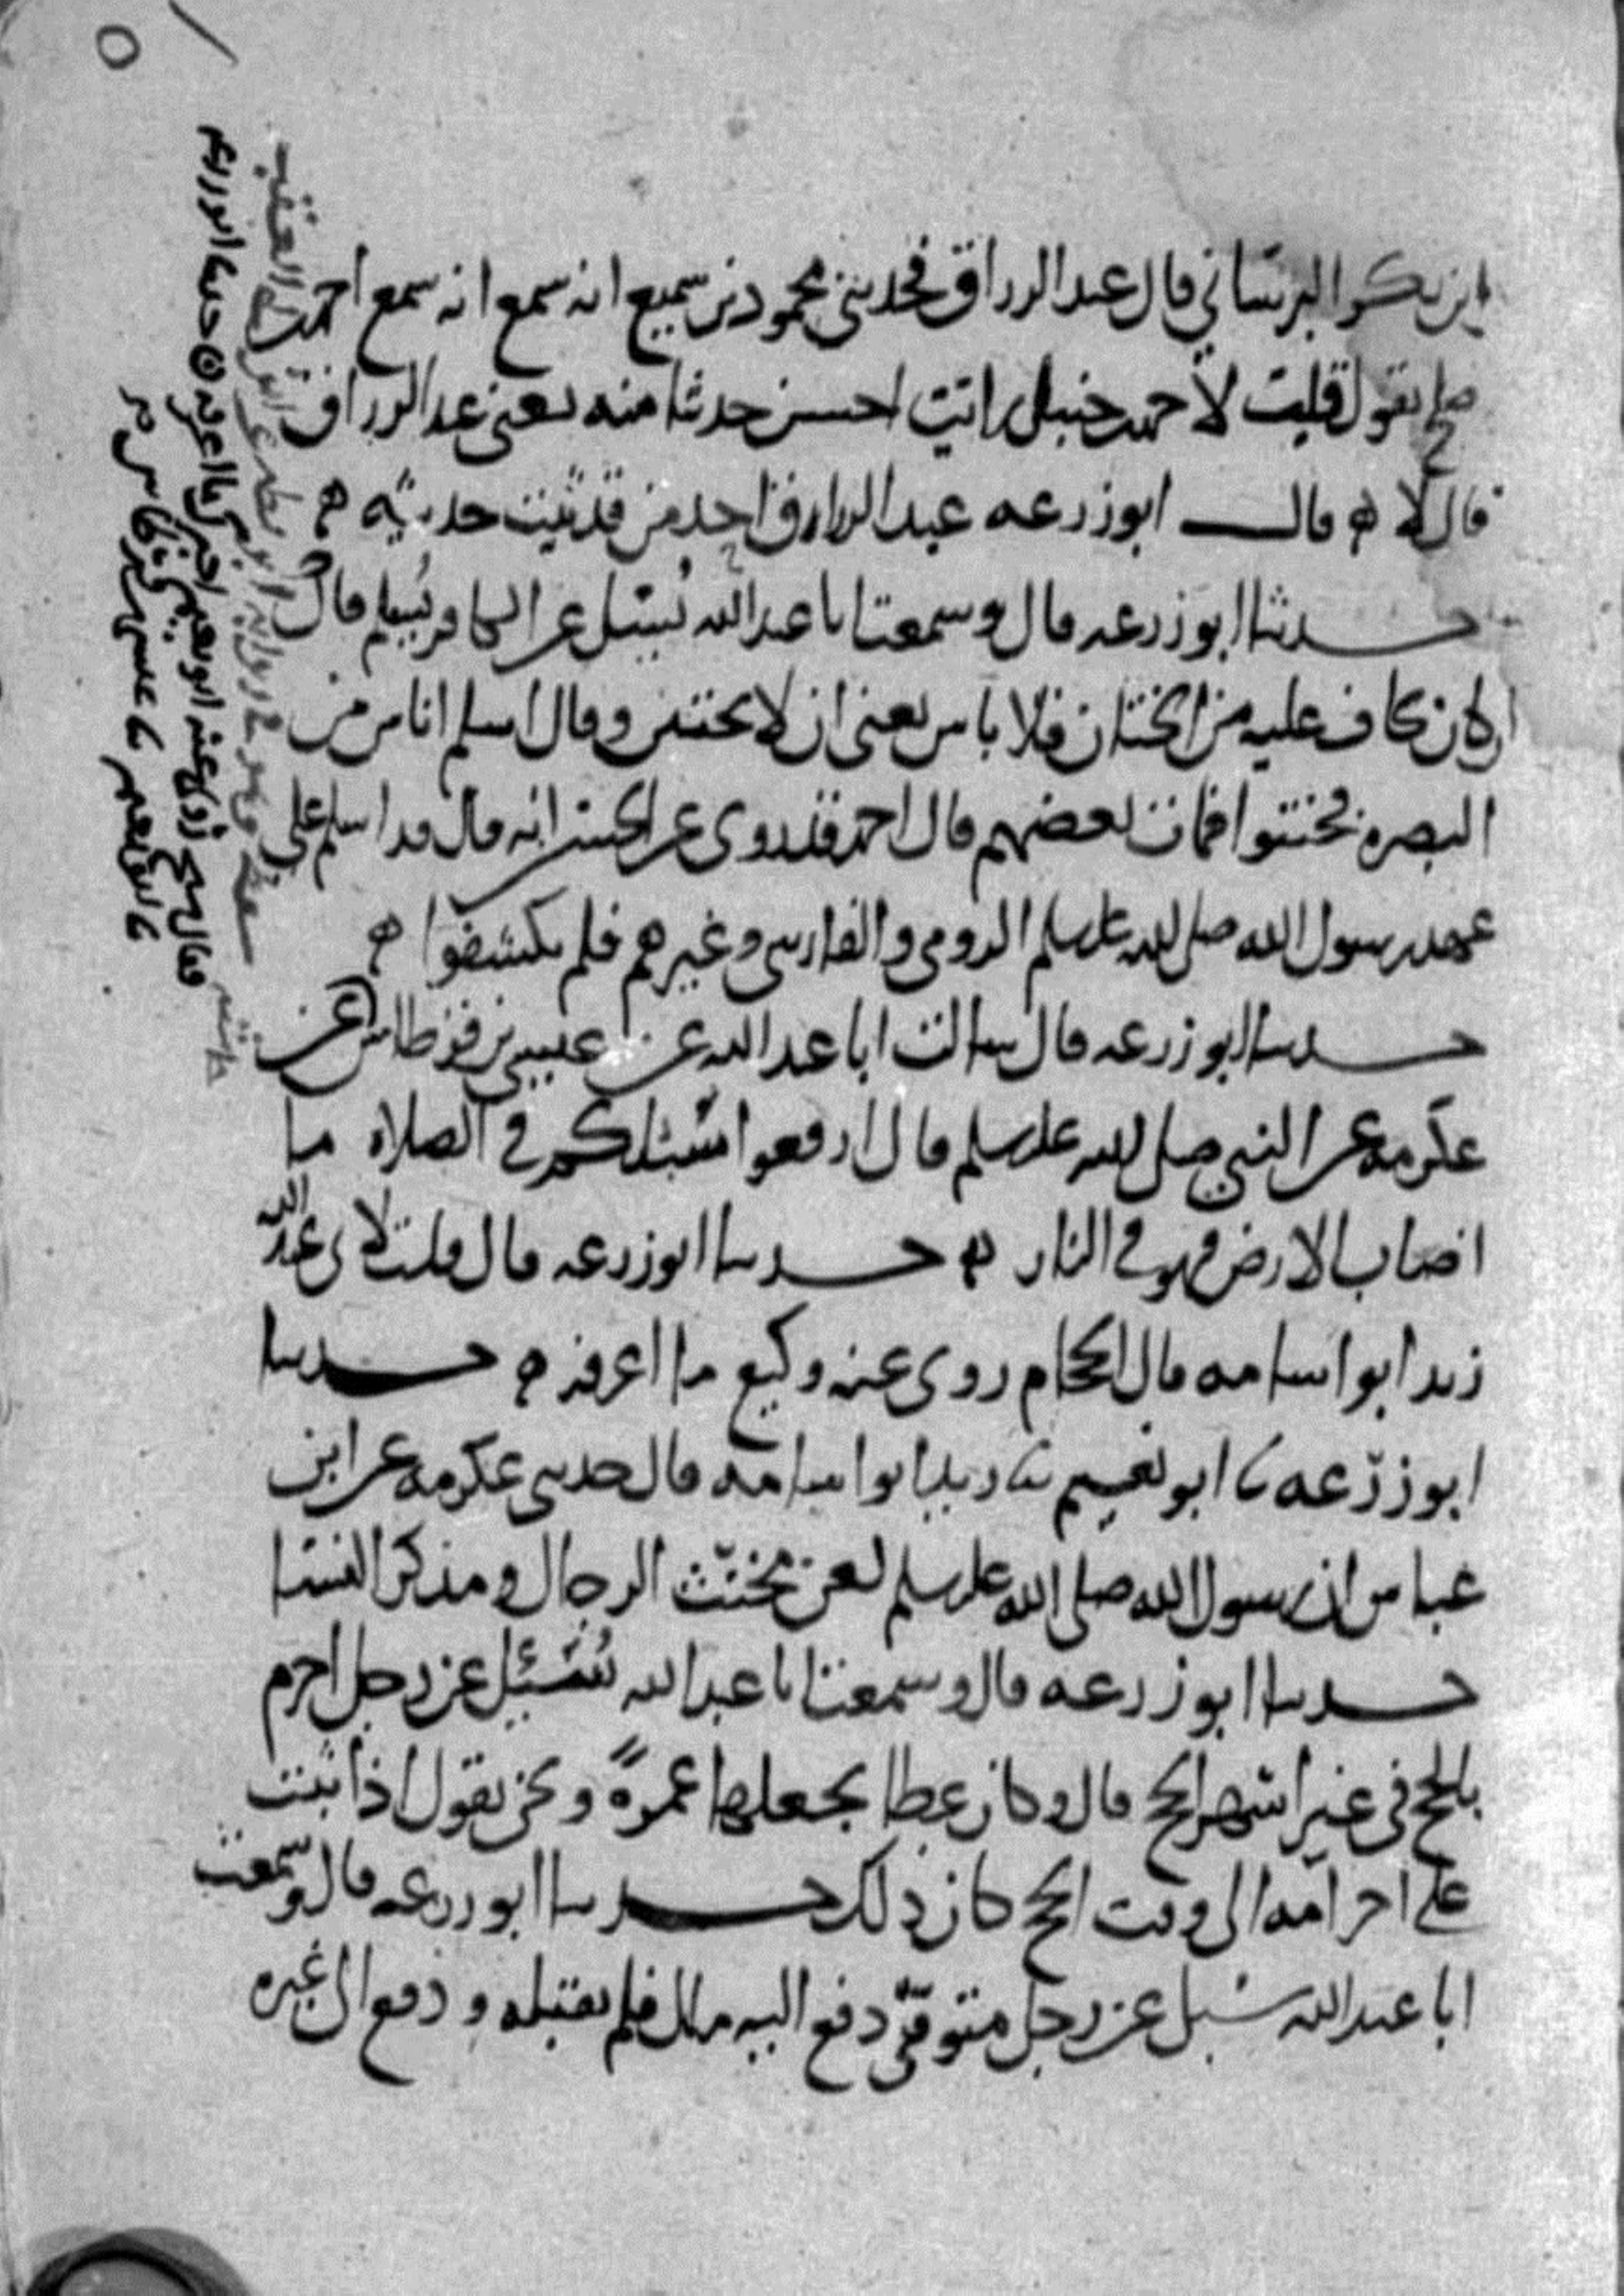 ابن بكر البرساني قال عبد الرزاق فحدثني محمود بن سميع انه سمع انه سمع احمد
صلح يقول قلت لاحمد حنبل رايت احسن حديثا منه يعني عبد الرزاق
قال لا ه قال ابو زرعه عبد الرزاق احد من قد ثبت حديثه ه
حدثنا ابو زرعه قال وسمعت ابا عبد الله يسئل عن الكافر يسلم قال
ان كان يخاف عليه من الختان فلا باس يعني ان لا يختتن وقال اسلم اناس من
البصره فختنوا فمات بعضهم قال احمد قد روى عن الحسن انه قال قد اسلم على
عهد رسول الله صلى الله عليه وسلم الرومي والفارسي وغيرهم فلم يكشفوا ه
حدثنا ابو زرعه قال سالت ابا عبد الله عن عيسى بن قرطاس عن
عكرمه عن النبي صلى الله عليه وسلم قال ارفعوا سبلكم في الصلاه ما
اصاب الارض فهو في النار ه حدثنا ابو زرعه قال قلت لابي عبد الله
زيد ابو اسامه قال الحجام روى عنه وكيع ما اعرفه ه حدثنا
ابو زرعه نا ابو نعيم نا زيد ابو اسامه قال حدثني عكرمه عن ابن
عباس ان رسول الله صلى الله عليه وسلم لعن مخنث الرجال ومذكر النسا
حدثنا ابو زرعه قال وسمعت ابا عبد الله يسئل عن رجل احرم
بالحج في غير اشهر الحج قال وكان عطا يجعلها عمرةً ونحن نقول اذا ثبت
على احرامه الى وقت الحج كان ذلك حدثنا ابو زرعه قال وسمعت
ابا عبد الله سئل عن رجل متوقي دفع اليه مال فلم يقبله ودفع الى غيره